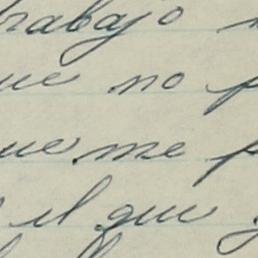 trabajo
que no
que me
el que